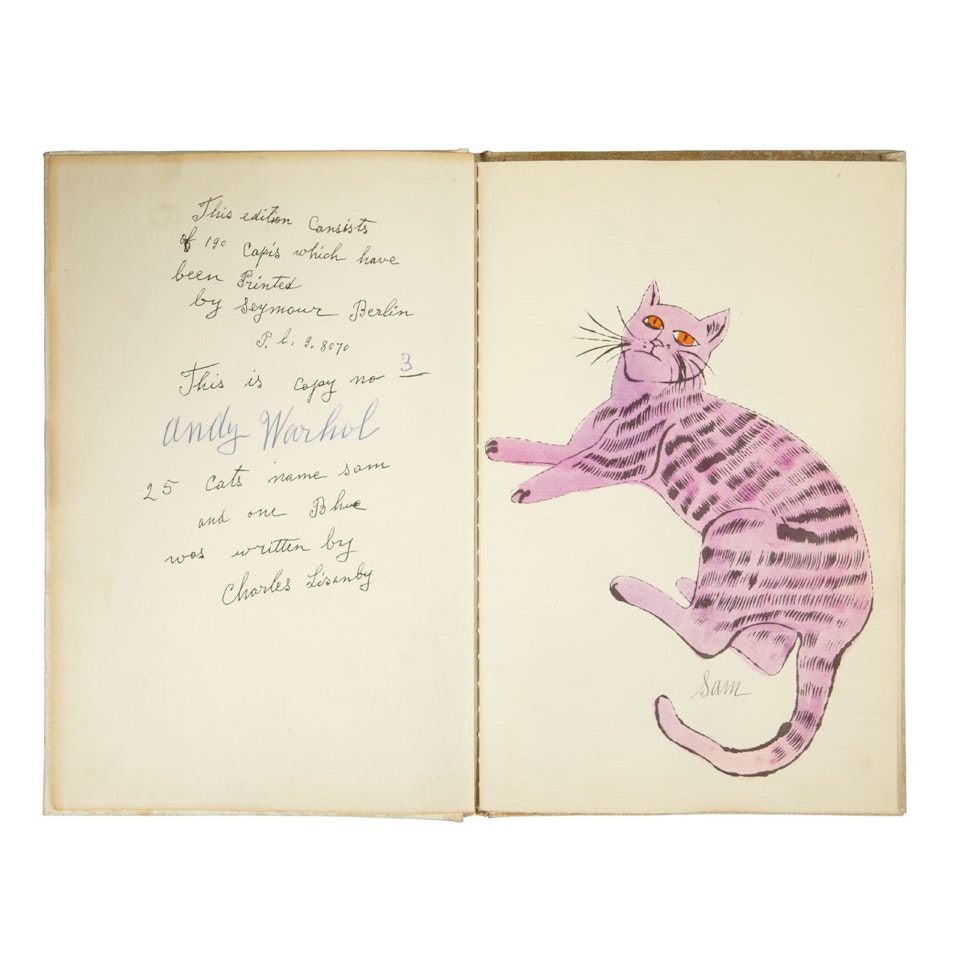 This edition Consists
of 190 Capis which have
been Printed
by Seymour Berlin
P. L. 9. 8070
This is copy no 3
Andy Warhol
25 Cats name sam
and one Blue
was written by
Charles Lisanby
Sam